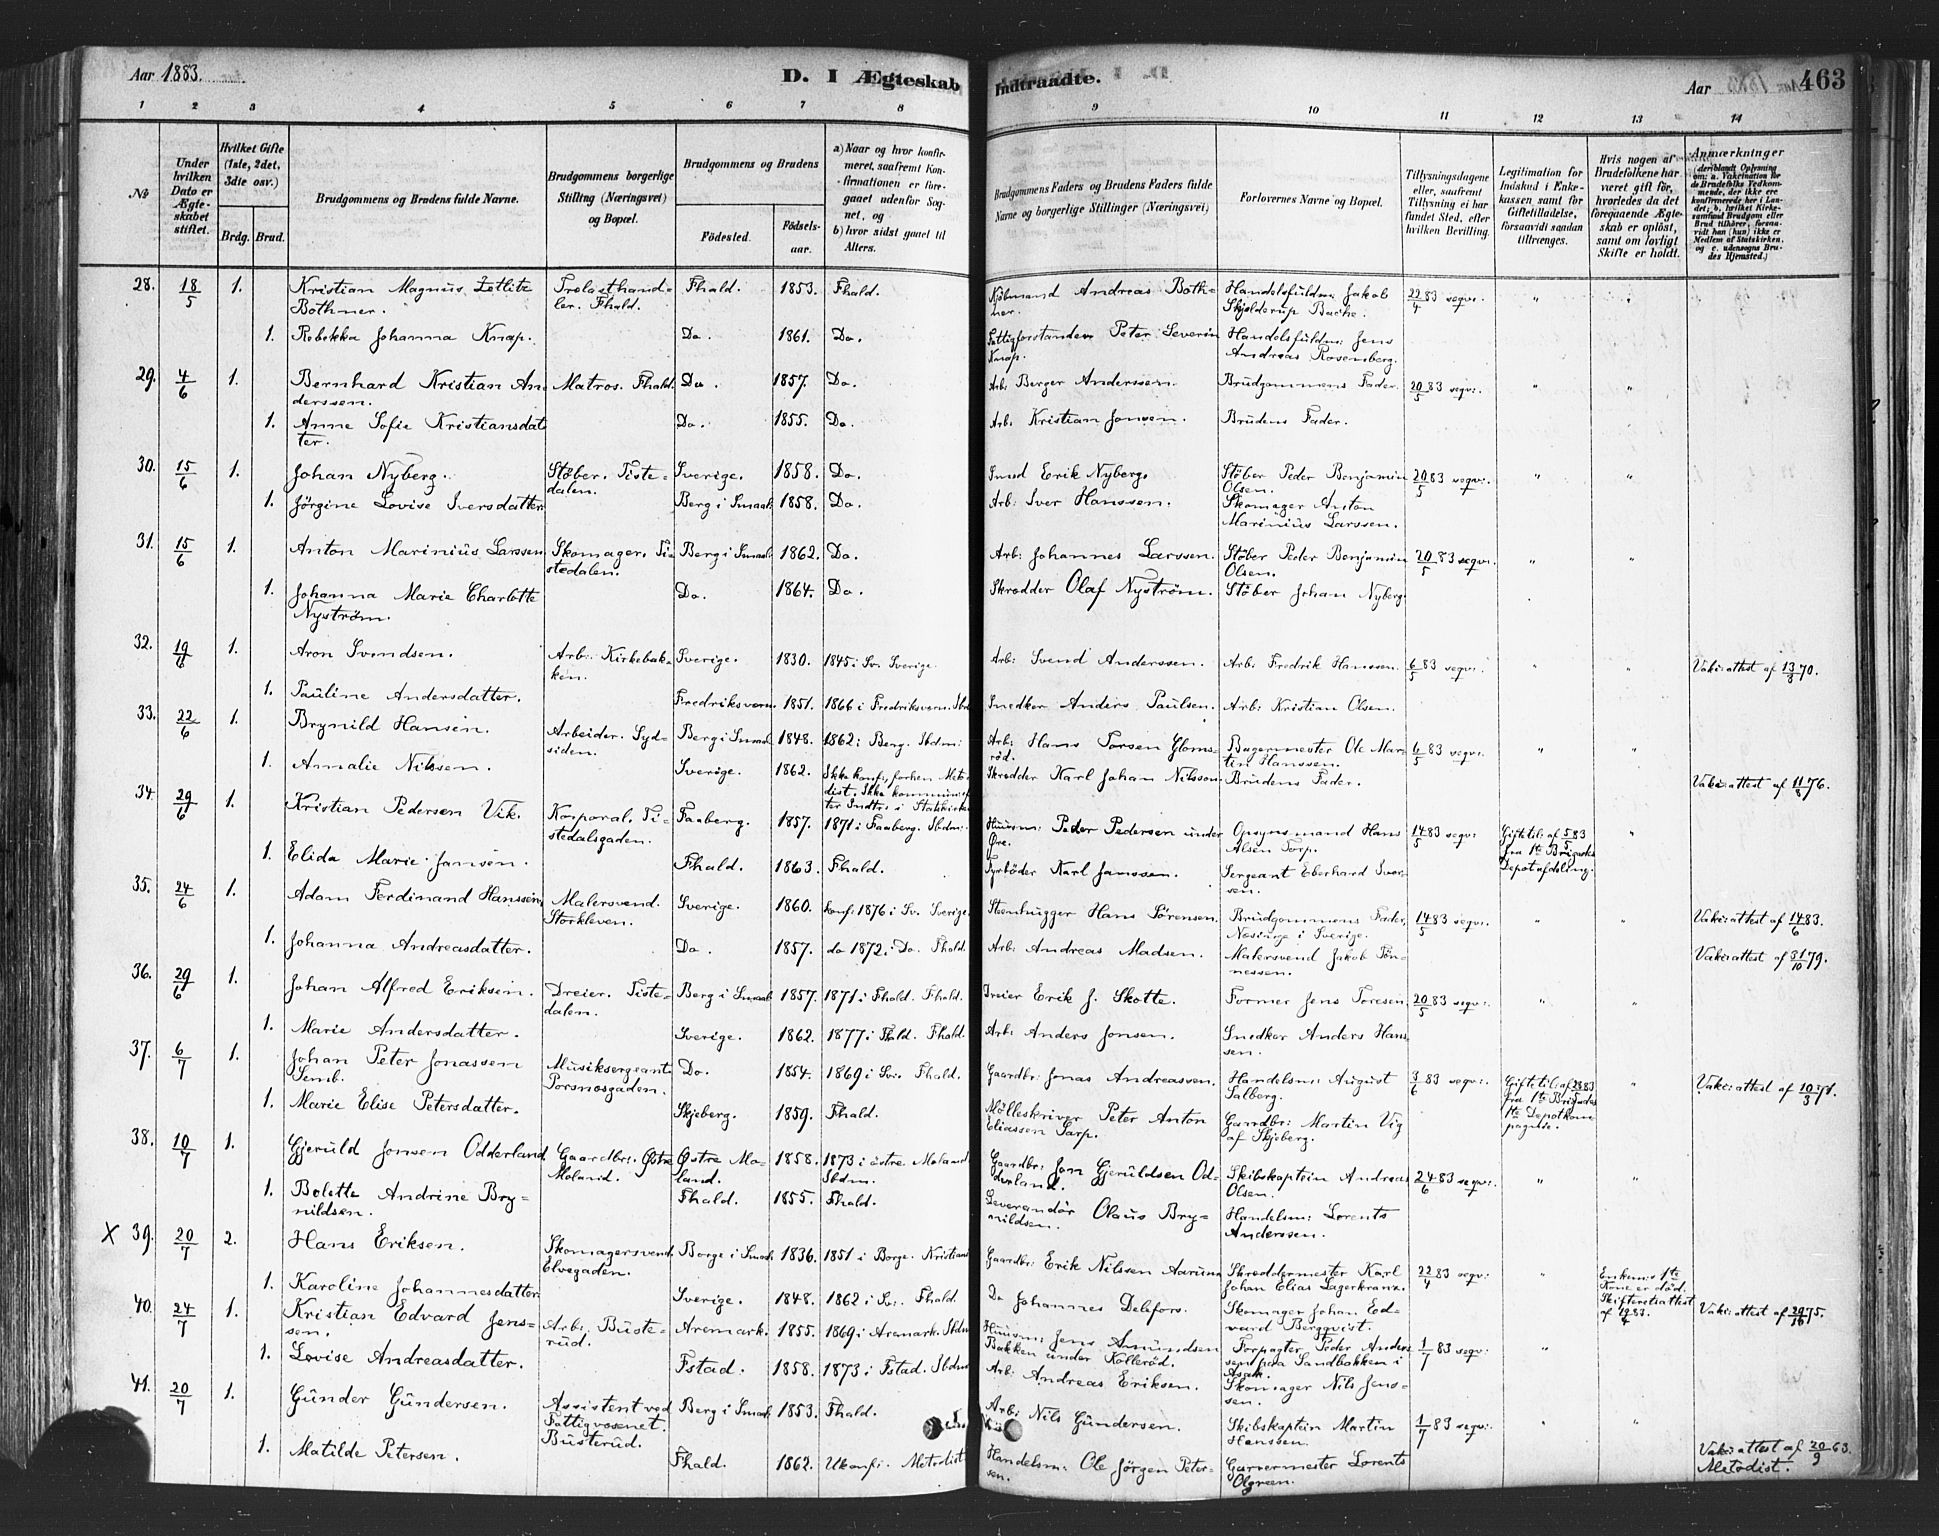 Aar 1883.
D. I Ægteskab Indtraadte.
Aar 463
1 2 3 4 5 6 7 8 9 10 11 12 13 14
No
Under hvilken Dato er Ægteskabet stiftet.
Hvilket Gifte (1ste, 2det, 3die osv.)
Brdg. Brud.
Brudgommens og Brudens fulde Navne.
Brudgommens borgerlige Stilling (Næringsvei) og Bopæl.
Brudgommens og Brudens
Fødested. Fødselsaar.
a) Naar og hvor konfirmeret, saafremt Konfirmationen er foregaaet udenfor Sognet, og
b) hvor sidst gaaet til Alters.
Brudgommens Faders og Brudens Faders fulde Navne og borgerlige Stillinger (Næringsvei)
Forlovernes Navne og Bopæl.
Tillysningsdagene eller, saafremt Tillysning ei har fundet Sted, efter hvilken Bevilling.
Legitimation for Indskud i Enkekassen samt for Giftetilladelse, forsaavidt saadan tiltrænges.
Hvis nogen af Brudefolkene har været gift før, hvorledes da det foregaaende Ægteskab er opløst, samt om lovligt Skifte er holdt.
Anmærkninger (deriblandt Oplysning om: a. Vakcination for de Brudefolks Vedkommende, der ikke ere konfirmerede her i Landet; b. hvilket Kirkesamfund Brudgom eller Brud tilhører, forsaavidt han (hun) ikke er Medlem af Statskirken, og c. udensogns Brudes Hjemsted.)
28. 18/5 1. Kristian Magnus Zetlitz Bothner. Trælasthandler. Fhald. Fhald. 1853. Fhald. Kjøbmand Andreas Bothner. Handelsfuldm: Jakob Skjelderup Bache. 22/4 83 segv:.
1. Rebekka Johanna Knap. Do. 1861. Do. Fattigforstander Peter Severin Knap. Handelsfuldm: Jens Andreas Rosenberg.
29. 4/6 1. Bernhard Kristian Anderssen. Matros. Fhald. Do. 1857. Do. Arb: Berger Anderssen. Brudgommens Fader. 20/5 83 segv:.
1. Anne Sofie Kristiansdatter. Do. 1855. Do. Arb: Kristian Jonsen. Brudens Fader.
30. 15/6 1. Johan Nyberg. Støber. Tistedalen. Sverige. 1858. Do. Smed Erik Nyberg. Støber Peder Benjamin Olsen. 20/5 83 segv:.
1. Jörgine Lovise Iversdatter. Berg i Smaal. 1858. Do. Arb: Iver Hanssen. Skomager Anton Marinius Larssen.
31. 15/6 1. Anton Marinius Larssen. Skomager. Tistedalen. Berg i Smaal. 1862. Do. Arb: Johannes Larssen. Støber Peder Benjamin Olsen. 20/5 83 segv:.
1. Johanna Marie Charlotte Nyström. Do. 1864. Do. Skrædder Olaf Nyström. Støber Johan Nyberg.
32. 19/6 1. Aron Svendsen. Arb: Kirkebakken. Sverige. 1830. 1845 i Sv. Sverige. Arb: Svend Anderssen. Arb: Fredrik Hanssen. 6/5 83 segv: Vakc: attest af 13/8 70.
1. Pauline Andersdatter. Fredriksværn. 1851. 1866 i Fredriksværn. Ibd. Snedker Anders Paulsen. Arb: Kristian Olsen.
33. 22/6 1. Brynild Hansen. Arbeider. Sydsiden. Berg i Smaal. 1848. 1862 i Berg. Ibdm: Arb: Hans Torsen Glomsröd. Bagermester Ole Martin Hanssen. 6/5 83 segv:.
1. Amalie Nilssen. Sverige. 1862. Ikke konf:, forhen Metodist. Skrædder Karl Johan Nilsson. Brudens Fader. Vakc: attest af 11/8 76.
34. 29/6 1. Kristian Pedersen Vik. Korporal. Tistedalsgaden. Faaberg. 1857. 1871 i Faaberg. Ibdm: Huusm: Peder Pedersen under Øre. Opsynsmand Hans Alsen Torp. 14/5 83 segv: Giftetil: af 5/5 83 fra 1te Brigades Depotafdeling.
1. Elida Marie Jansen. Fhald. 1863. Fhald. Fyrböder Karl Janssen. Sergeant Eberhard Iversen.
35. 24/6 1. Adam Ferdinand Hanssen. Malersvend. Storkleven. Sverige. 1860. konf: 1876 i Sv. Sverige. Steenhugger Hans Sörensen. Brudgommens Fader, i Sverige. 14/5 83 segv:. Vakc: attest af 14/6 83.
1. Johanna Andreasdatter. Do. 1857. do 1872 i Do. Fhald. Arb: Andreas Madsen. Malersvend Jakob Tönnessen. Vakc: attest af 31/10 79.
36. 29/6 1. Johan Alfred Eriksen. Dreier. Tistedalen. Berg i Smaal. 1857. 1871 i Fhald. Fhald. Dreier Erik J. Skotte. Former Jens Toresen. 20/5 83 segv:.
1. Marie Andersdatter. Sverige. 1862. 1877 i Fhald. Fhald. Arb: Anders Jonsen. Snedker Anders Hanssen.
37. 6/7 1. Johan Peter Jonassen Semb. Musiksergeant Porsnæsgaden. Do. 1854. 1869 i Sv: Fhald. Gaardbr: Jonas Andreassen. Handelsm: August Salberg. 3/6 83 segv:. Giftetil: af 83 fra 1te Brigades 1te Depotkompagnie. Vakc: attest af 10/3 71.
1. Marie Elise Petersdatter. Skjeberg. 1859. Fhald. Mölleskriver Peter Anton Eliassen Sarp. Gaardbr: Martin Vig af Skjeberg.
38. 10/7 1. Gjeruld Jonsen Odderland. Gaardbr: Østre Moland. Østre Moland. 1858. 1873 i østre Moland. Ibdm. Gaardbr: Jon Gjeruldsen Odderland. Skibskaptein Andreas Olsen. 24/6 83 segv:.
1. Bolette Andrine Brynildsen. Fhald. 1855. Fhald. Leverandör Olaus Brynildsen. Handelsm: Lorents Anderssen.
X 39. 20/7 2. Hans Eriksen. Skomagersvend. Elvegaden. Borge i Smaal. 1836. 1851 i Borge. Gaardbr: Erik Nilsen Aarum Skræddermester Karl Johan Elias Lagerkranz. 22/4 83 segv: Enkem: 1te Kone er död. Skifteretsattest af 19/4 83.
1. Karoline Johannesdatter. Sverige. 1848. 1862 i Sv: Fhald. Do Johannes Delefors. Skomager Johan Edvard Bergqvist. Vakc: attest af 29/10 75.
40. 24/7 1. Kristian Edvard Jenssen. Arb: Busterud. Aremark. 1855. 1869 i Aremark. Ibdm. Huusm: Jens Amundsen Bakken under Kollerød. Forpagter Peder Anderssen paa Sandbakken i Asak. 1/7 83 segv:
1. Lovise Andreasdatter. Fstad. 1858. 1873 i Fstad. Ibdm. Arb: Andreas Eriksen. Skomager Nils Jenssen.
41. 20/7 1. Gunder Gundersen. Assistent ved Fattigvæsenet. Busterud. Berg i Smaal. 1853. Fhald. Arb: Nils Gundersen. Skibskaptein Martin Hanssen. 1/7 83 segv:.
1. Matilde Petersen. Fhald. 1862. Ukonf: Metodist. Handelsm: Ole Jörgen Petersen. Garvermester Lorents Olgreen. Vakc: attest af 20/9 63. Metodist.